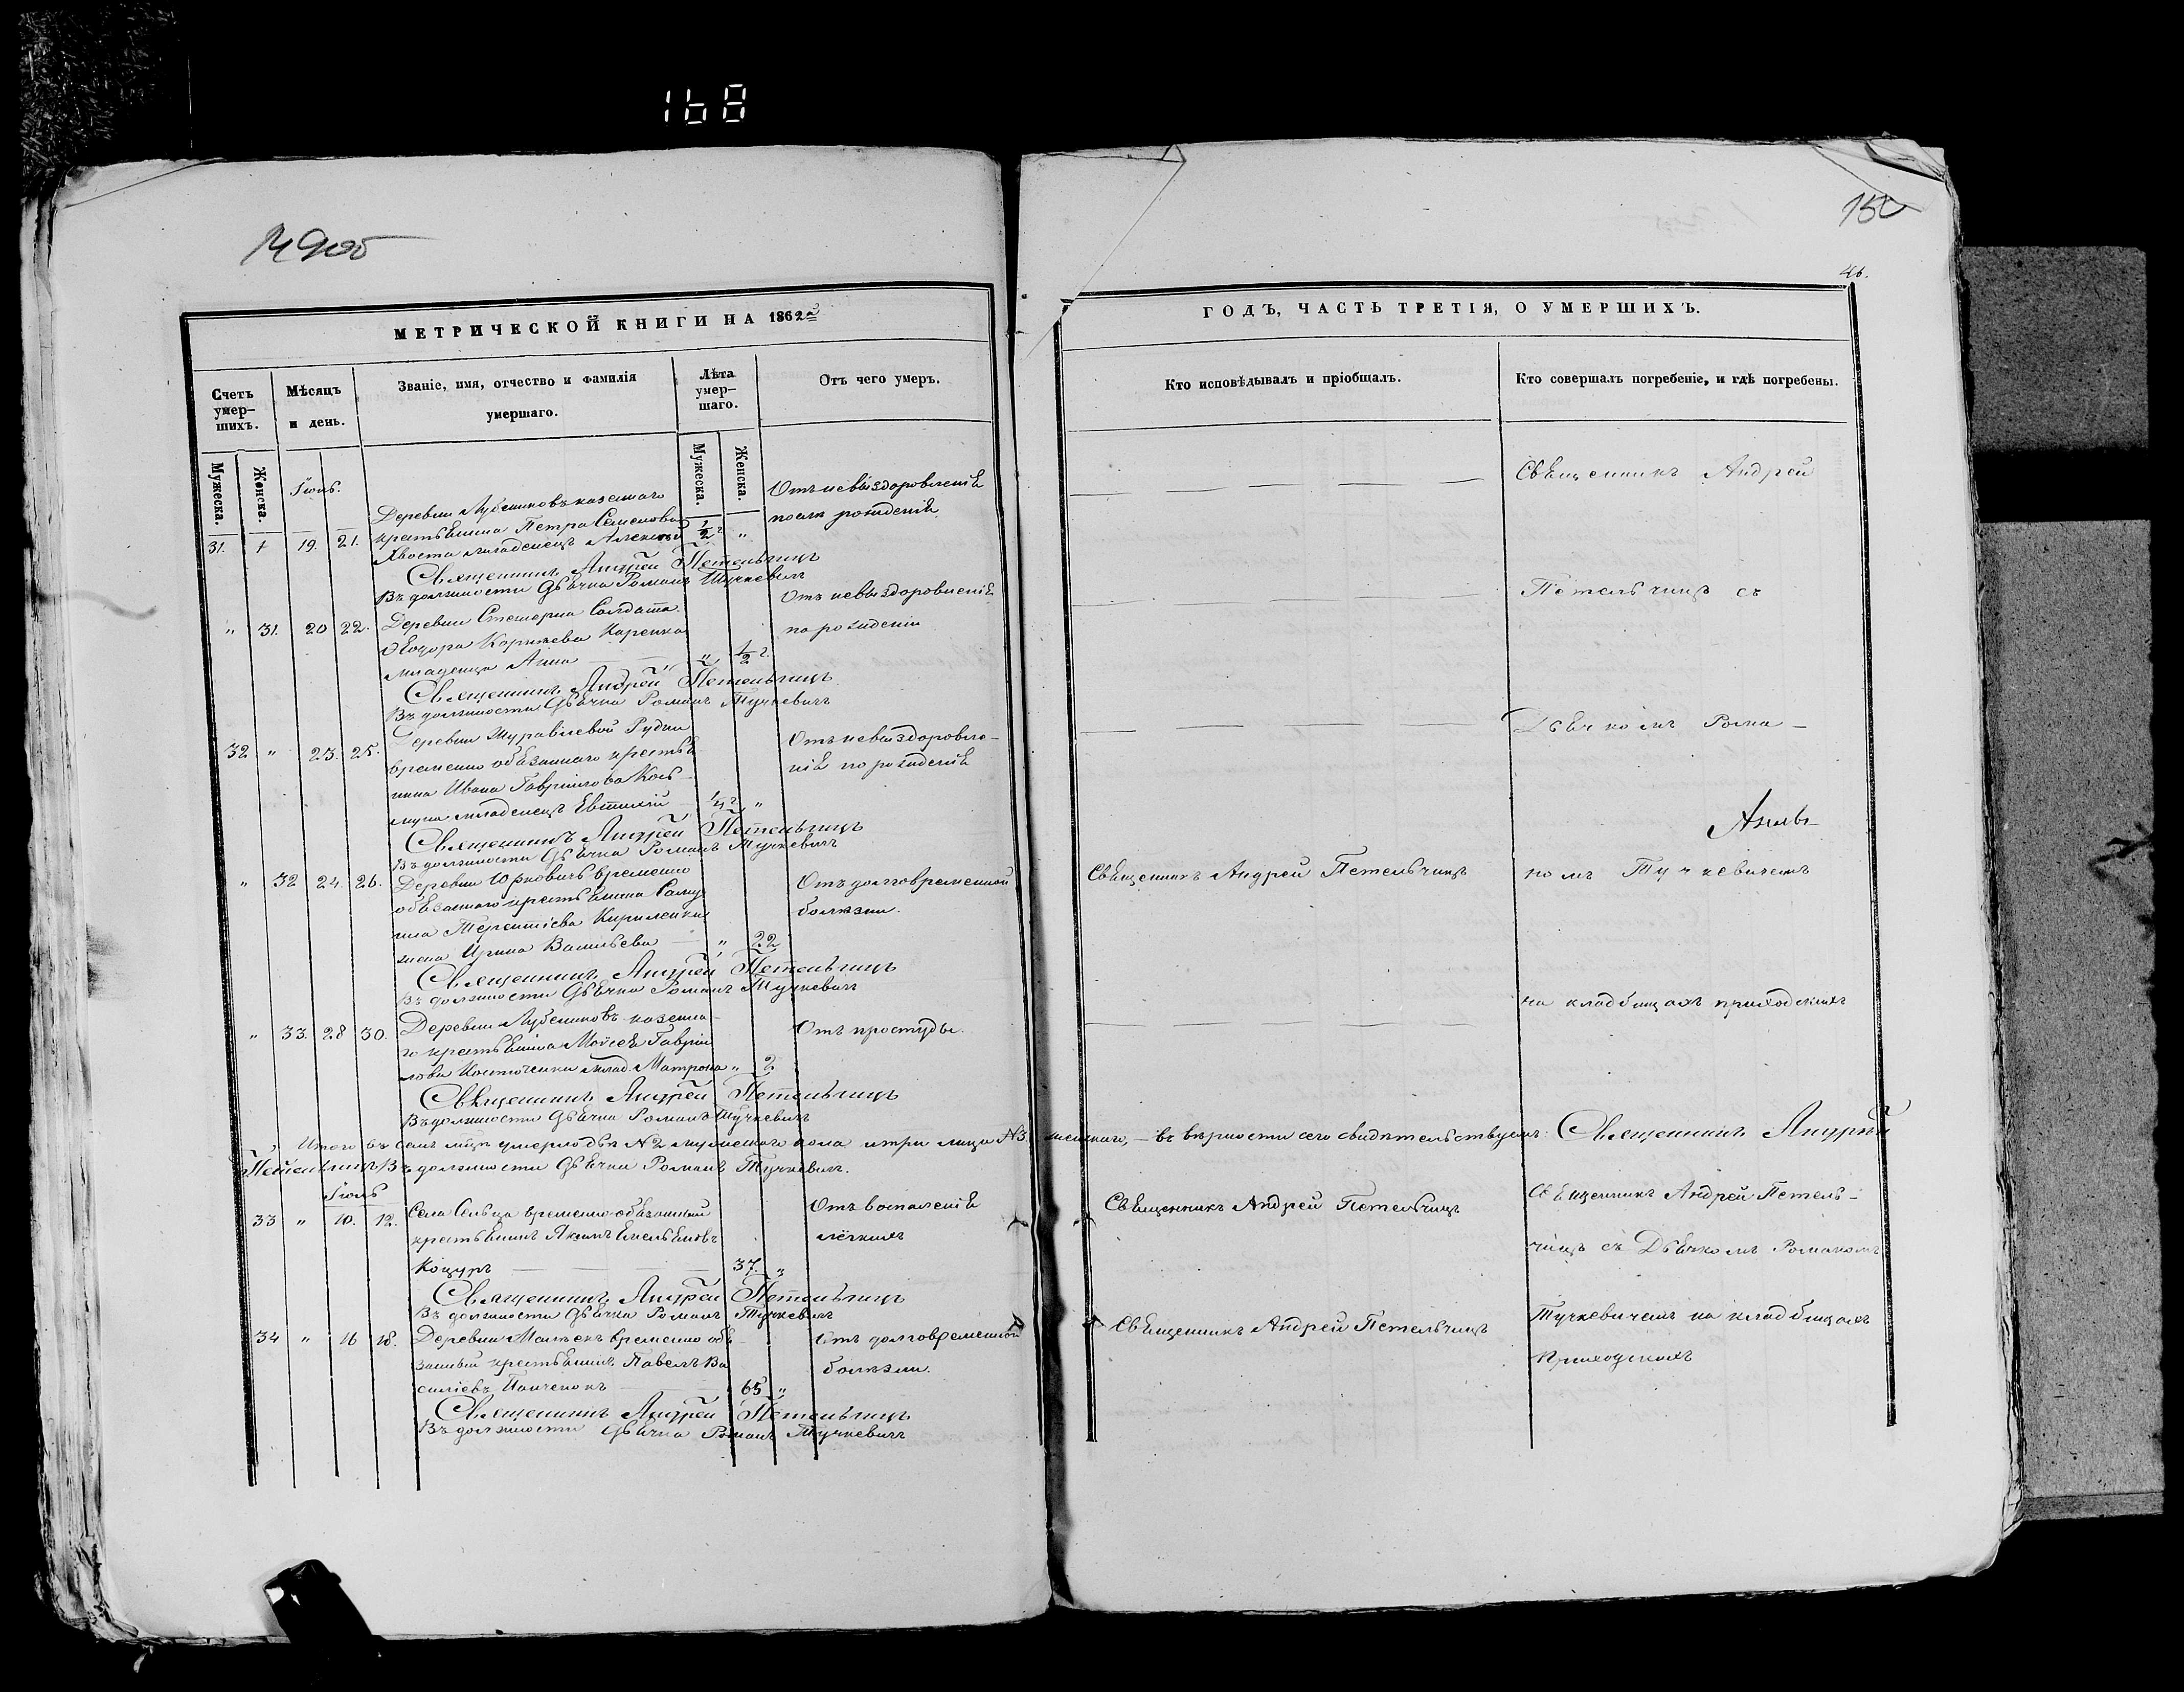 168
150
46.
МЕТРИЧЕСКОЙ КНИГИ НА 1862й
Счетъ умер-
шихъ.
Мѣсяцъ
и день.
Званіе, имя, отчество и фамилія
умершаго.
Лѣта
умер-
шаго.
Отъ чего умеръ.
Мужеска.
Женска.
Мужеска.
Женска.
Іюнь.
Деревни Лубениковъ казеннаго
Отъ невыздоровленія
31. 19. 21. крестьянина Петра Семенова
1/2 г. "
по рожденія
Хвоста младенецъ Алексѣй
Священникъ Андрей Петельчицъ
Въ должности Дьячка Романъ Тучкевичъ
" 31. 20 22. Деревни Солдата
Отъ невыздоровленія
Ѳеодора Карпѣева Карпенка
по рожденіи
младенца Анна " 1/2 г.
Священникъ Андрей Петельчицъ
Въ должности Дьячка Романъ Тучкевичъ
32 " 23. 25. Деревни Журавлевой Рудни
Отъ невыздоровле-
временно обязаннаго крестья-
нія по рожденія
нина Ивана Гаврилова Коз-
младенецъ Евтихій "
Священникъ Андрей Петельчицъ
Въ должности Дьячка Романъ Тучкевичъ
" 32 24. 26. Деревни Юрковичъ временно
Отъ долговременной
обязаннаго крестьянина Саму-
болѣзни.
ила Терентіева Кириленки
жена Ирина Васильева — " 22
Священникъ Андрей Петельчицъ
Въ должности Дьячка Романъ Тучкевичъ
" 33. 28 30. Деревни Лубениковъ казенна-
Отъ простуды.
го крестьянина Моисея Гаврии-
лова Костюченки млад. Матрона " 2
Священникъ Андрей Петельчицъ
Въ должности Дьячка Романъ Тучкевичъ
Итого въ семъ мѣсяцѣ умерло два №2 мужескаго пола и три лица №3 женскаго, — въ вѣрности сего свидѣтельствуемъ: Священникъ Андрей
Петельчицъ Въ должности Дьячка Романъ Тучкевичъ.
Іюль
33 " 10. 12. Села Сельца временно-обязанный
Отъ воспаленія
крестьянинъ Акимъ Емельяновъ
лёгкихъ
Коцуръ — 37. "
Священникъ Андрей Петельчицъ
Въ должности Дьячка Романъ Тучкевичъ
34 " 16 18. Деревни временно обя-
Отъ долговременной
занный крестьянинъ Павелъ Ва-
болѣзни.
силіевъ Панченокъ 65 "
Священникъ Андрей Петельчицъ
Въ должности Дьячка Романъ Тучкевичъ
ГОДЪ, ЧАСТЬ ТРЕТІЯ, О УМЕРШИХЪ.
Кто исповѣдывалъ и пріобщалъ.
Кто совершалъ погребеніе, и гдѣ погребены.
Священникъ Андрей
Петельчицъ съ
Дьячкомъ Рома-
Священникъ Андрей Петельчицъ
номъ Тучкевичемъ
на кладбищахъ приходскихъ
Священникъ Андрей Петельчицъ
Священникъ Андрей Петель-
чицъ съ Дьячкомъ Романомъ
Священникъ Андрей Петельчицъ
Тучкевичемъ на кладбищахъ
приходскихъ